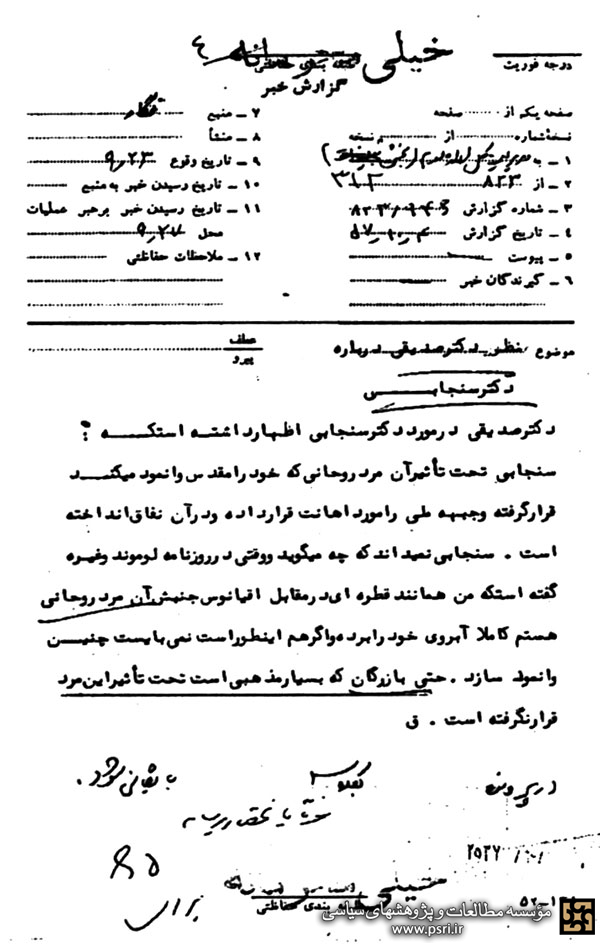 خیلی محرمانه
طبقه بندی حفاظتی
گزارش خبر
درجه فوریت
صفحه یک از صفحه
نسخه شماره از نسخه
۱ – به
۲ – از ۸۲۲ ۳۱۲
۳ – شماره گزارش
۴ – تاریخ گزارش ۵۷-۱۰-۴
۵ – پیوست
۶ – گیرندگان خبر
۷ – منبع
۸ – منشأ
۹ – تاریخ وقوع ۹.۲۳
۱۰ – تاریخ رسیدن خبر به منبع
۱۱ – تاریخ رسیدن خبر برهبر عملیات
محل ۹.۲۷
۱۲ – ملاحظات حفاظتی
موضوع نظر دکتر صدیقی درباره
دکتر سنجابی
عطف
پیرو
دکتر صدیقی در مورد دکتر سنجابی اظهار داشته است که :
سنجابی تحت تأثیر آن مرد روحانی که خود را مقدس وانمود میکند
قرار گرفته و جبهه ملی را مورد اهانت قرار داده و در آن نفاق انداخته
است . سنجابی نمیداند که چه میگوید و وقتی در روزنامه لوموند وغیره
گفته است که من همانند قطره ای در مقابل اقیانوس جنبش آن مرد روحانی
هستم کاملا آبروی خود را برده و اگر هم اینطور است نمی بایست چنین
وانمود سازد . حتی بازرگان که بسیار مذهبی است تحت تأثیر این مرد
قرار نگرفته است . ق
در پرونده
بایگانی شود .
۲۵۳۷/۱۰/
۹۵
خیلی محرمانه
طبقه بندی حفاظتی
مؤسسه مطالعات و پژوهشهای سیاسی
www.psri.ir